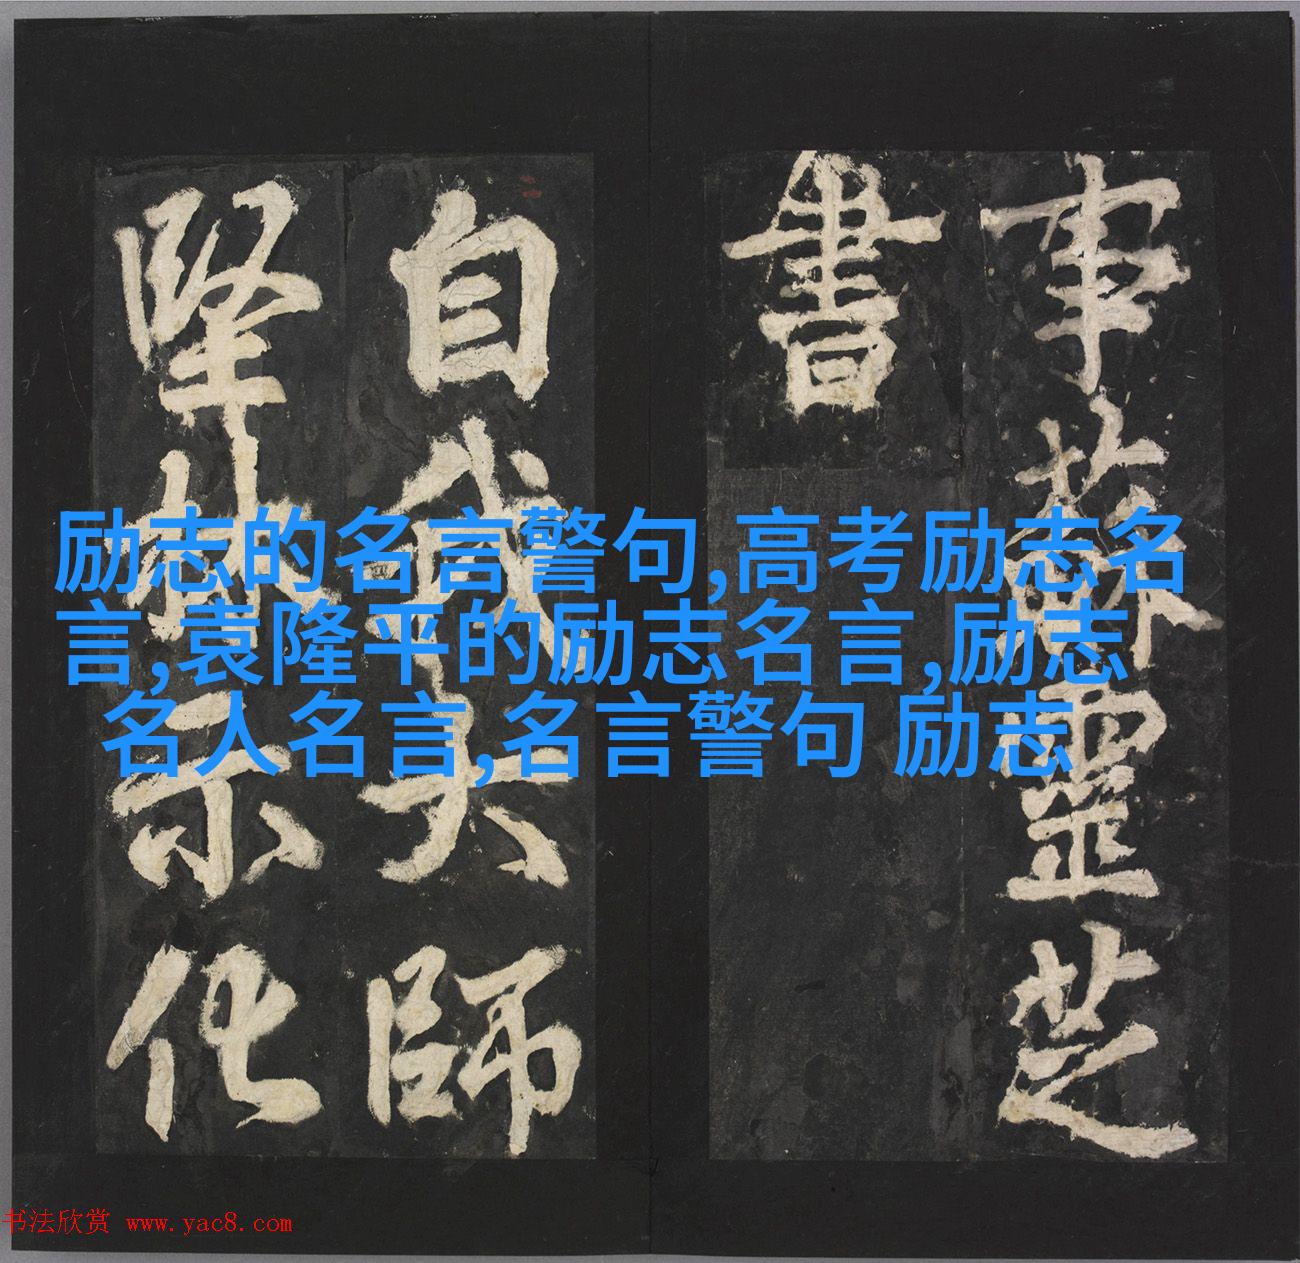 事蘇靈芝
書
自我大師
堅林示化
励志的名言警句,高考励志名
言,袁隆平的励志名言,励志
名人名言,名言警句 励志
书法欣赏 www.yac8.com